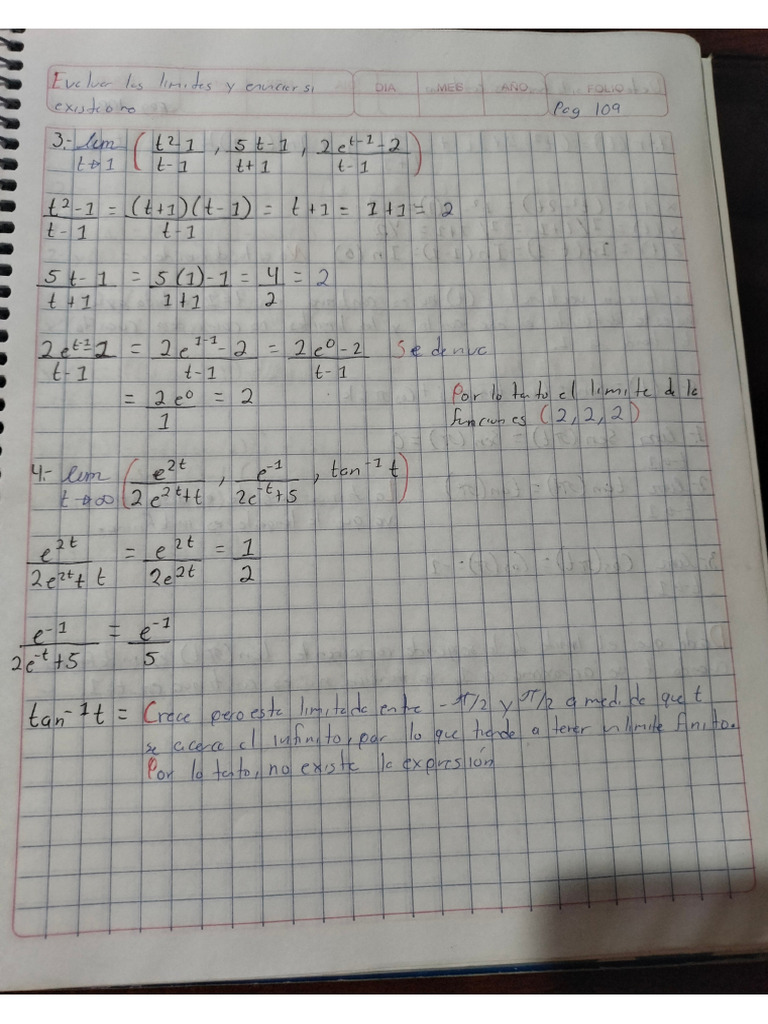 Evaluar los limites y enunciar si
existe o no
DIA MES AÑO FOLIO
Pag 109
3.- lim t→1 ( t²-1 / t-1 , 5t-1 / t+1 , 2e^(t-1)-2 / t-1 )
t²-1 / t-1 = (t+1)(t-1) / t-1 = t+1 = 1+1 = 2
5t-1 / t+1 = 5(1)-1 / 1+1 = 4 / 2 = 2
2e^(t-1)-2 / t-1 = 2e^(1-1)-2 / t-1 = 2e⁰-2 / t-1 Se deriva
= 2e⁰ / 1 = 2
Por lo tanto el limite de la
funciones (2,2,2)
4.- lim t→∞ ( e^(2t) / 2e^(2t)+t , e^(-1) / 2e^(-t)+5 , tan⁻¹ t )
e^(2t) / 2e^(2t)+t = e^(2t) / 2e^(2t) = 1 / 2
e^(-1) / 2e^(-t)+5 = e^(-1) / 5
tan⁻¹t = Crece pero esta limitada entre -π/2 y π/2 a medida que t
se acerca el infinito, por lo que tiende a tener un limite finito.
Por lo tanto, no existe la expresión